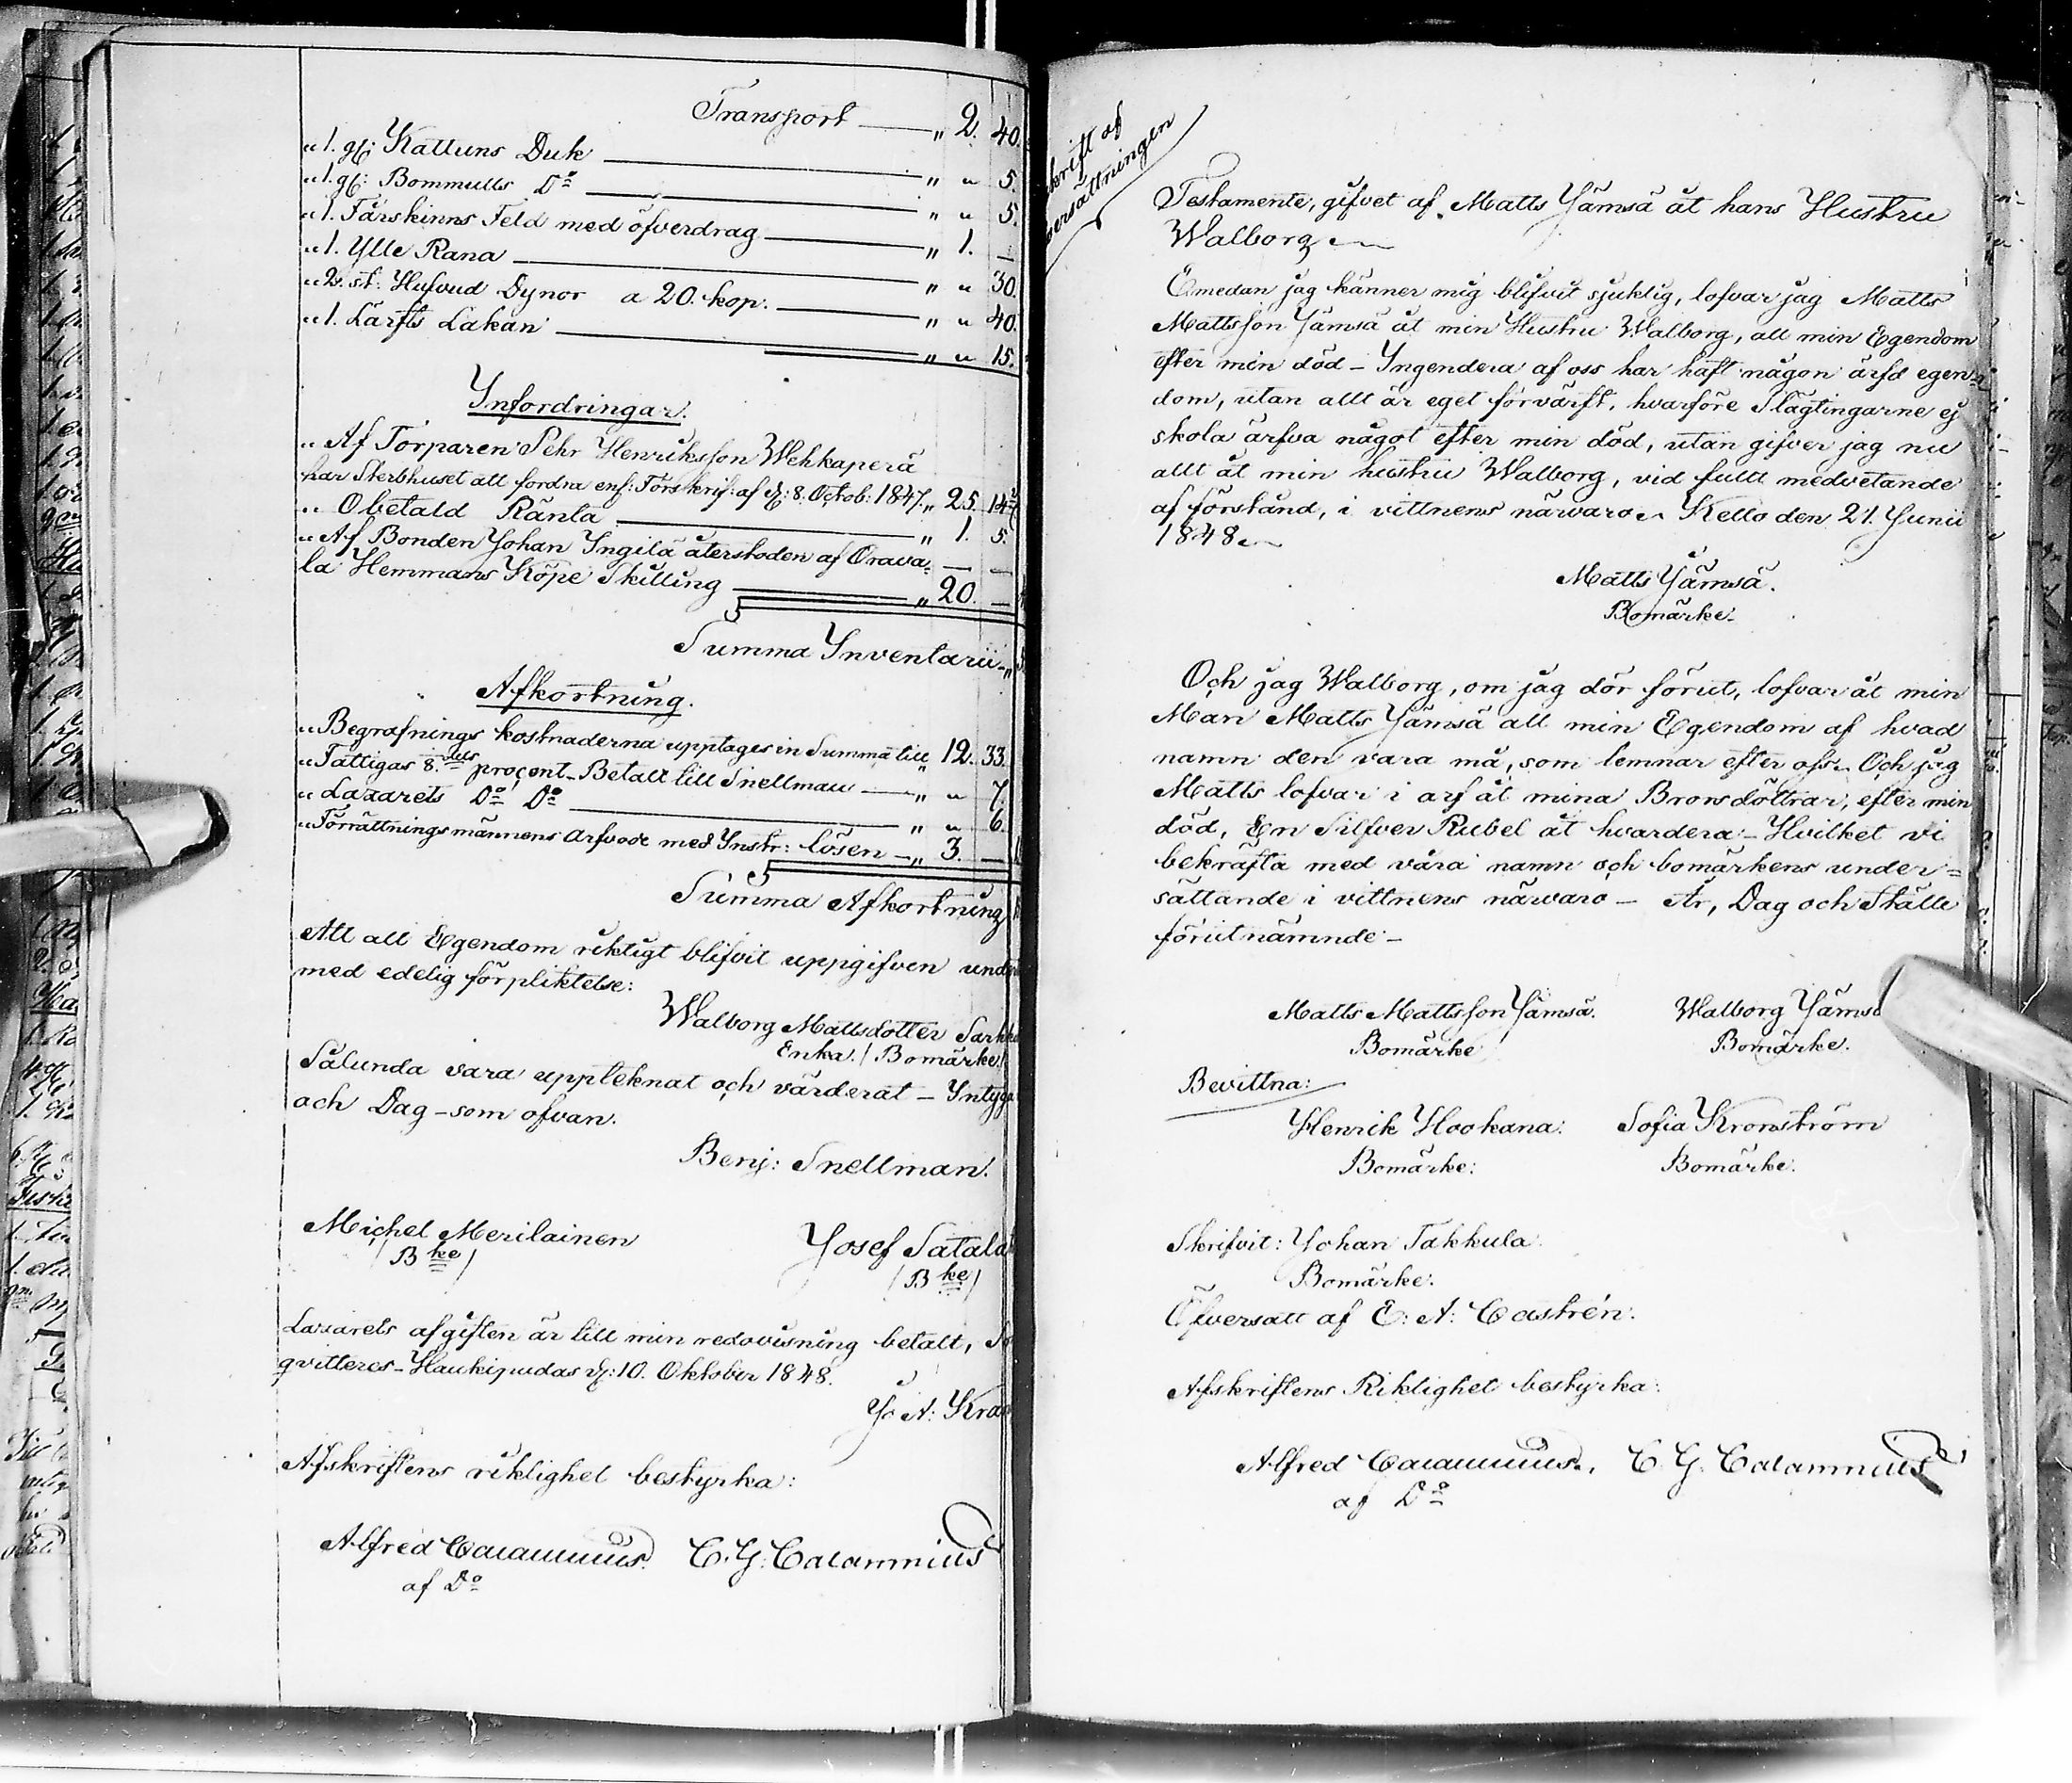 Transport — " 2. 40.
" 1. gl: Kattuns Duk — " " 5.
" 1. gl: Bommulls Do — " " 5.
" 1. Fårskinns Feld med öfverdrag — " 1. —
" 1. Ylle Rana — " " 30.
" 2. st: Hufvud Dynor a 20. kop. — " " 40.
" 1. Lärfts Lakan — " " 15.
Infordringar.
" Af Torparen Pehr Henriksson Wehkaperä
har Sterbhuset att fordra enl: Förskrif: af d: 8. Octob: 1847. " 25. 14
" Obetald Ränta — " 1. 5.
" Af Bonden Johan Ingilä återstoden af Orava= — —
la Hemmans Köpe Skilling — " 20. —
Summa Inventarii — "
Afkortning.
" Begrafnings kostnaderna upptages in Summa till " 12. 33.
" Fattigas 8.dels procent – Betalt till Snellman — " " 7.
" Lazarets Do Do — " " 6.
" Förrättningsmännens Arfvode med Instr: lösen — " 3. —
Summa Afkortning
Att all Egendom riktigt blifvit uppgifven under
med edelig förpliktelse:
Walborg Mattsdotter
Enka. / Bomärke /
Sålunda vara uppteknat och värderat — Intyga
och Dag – som ofvan.
Benj: Snellman.
Michel Merilainen Josef Satala
/ Bke / / Bke /
Lazarets afgiften är till min redovisning betalt,
qvitteres – Haukipudas d: 10. Oktober 1848.
J. A: Kra
Afskriftens riktighet bestyrka:
Alfred Calamnius. C. G. Calamnius
af Do
skrift af
versättningen
Testamente, gifvet af Matts Jämsä åt hans Hustru
Walborg
Emedan jag känner mig blifvit sjuklig, lofvar jag Matts
Mattsson Jämsä åt min Hustru Walborg, all min Egendom
efter min död – Ingendera af oss har haft någon ärfd egen=
dom, utan allt är eget förvärft, hvarföre Slägtingarne ej
skola ärfva något efter min död, utan gifver jag nu
allt åt min hustru Walborg, vid fullt medvetande
af förstånd, i vittnens närvaro. Kello den 21. Junii
1848.
Matts Jämsä.
Bomärke.
Och jag Walborg, om jag dör förut, lofvar åt min
Man Matts Jämsä all min Egendom af hvad
namn den vara må, som lemnar efter oss. Och jag
Matts lofvar i arf åt mina Brorsdöttrar, efter min
död, En Silfver Rubel åt hvardera – Hvilket vi
bekräfta med våra namn och bomärkens under=
sättande i vittnens närvaro – År, Dag och Ställe
förutnämnde –
Matts Mattsson Jämsä. Walborg Jämsä
Bomärke Bomärke.
Bevittna:
Henrik Hookana: Sofia Kronström
Bomärke: Bomärke:
Skrifvit: Johan Takkula.
Bomärke:
Öfversatt af E: A: Castrén.
Afskriftens Riktighet bestyrka:
Alfred Calamnius. C. G. Calamnius
af Do